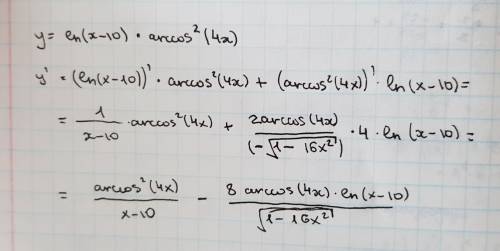 y = ln(x-10) · arccos²(4x)
y' = (ln(x-10))' · arccos²(4x) + (arccos²(4x))' · ln(x-10) =
= 1/(x-10) · arccos²(4x) + 2arccos(4x)/(-√(1-16x²)) · 4 · ln(x-10) =
= arccos²(4x)/(x-10) - 8 arccos(4x) · ln(x-10)/√(1-16x²)